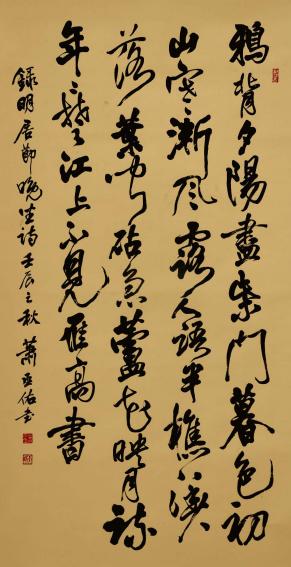 鴉背夕陽盡柴門暮色初
山空漸風露人語半樵漁
落葉聞砧急蘆花映月疏
年年江上不見雁書
錄明居節晚坐詩壬辰之秋蕭佑書